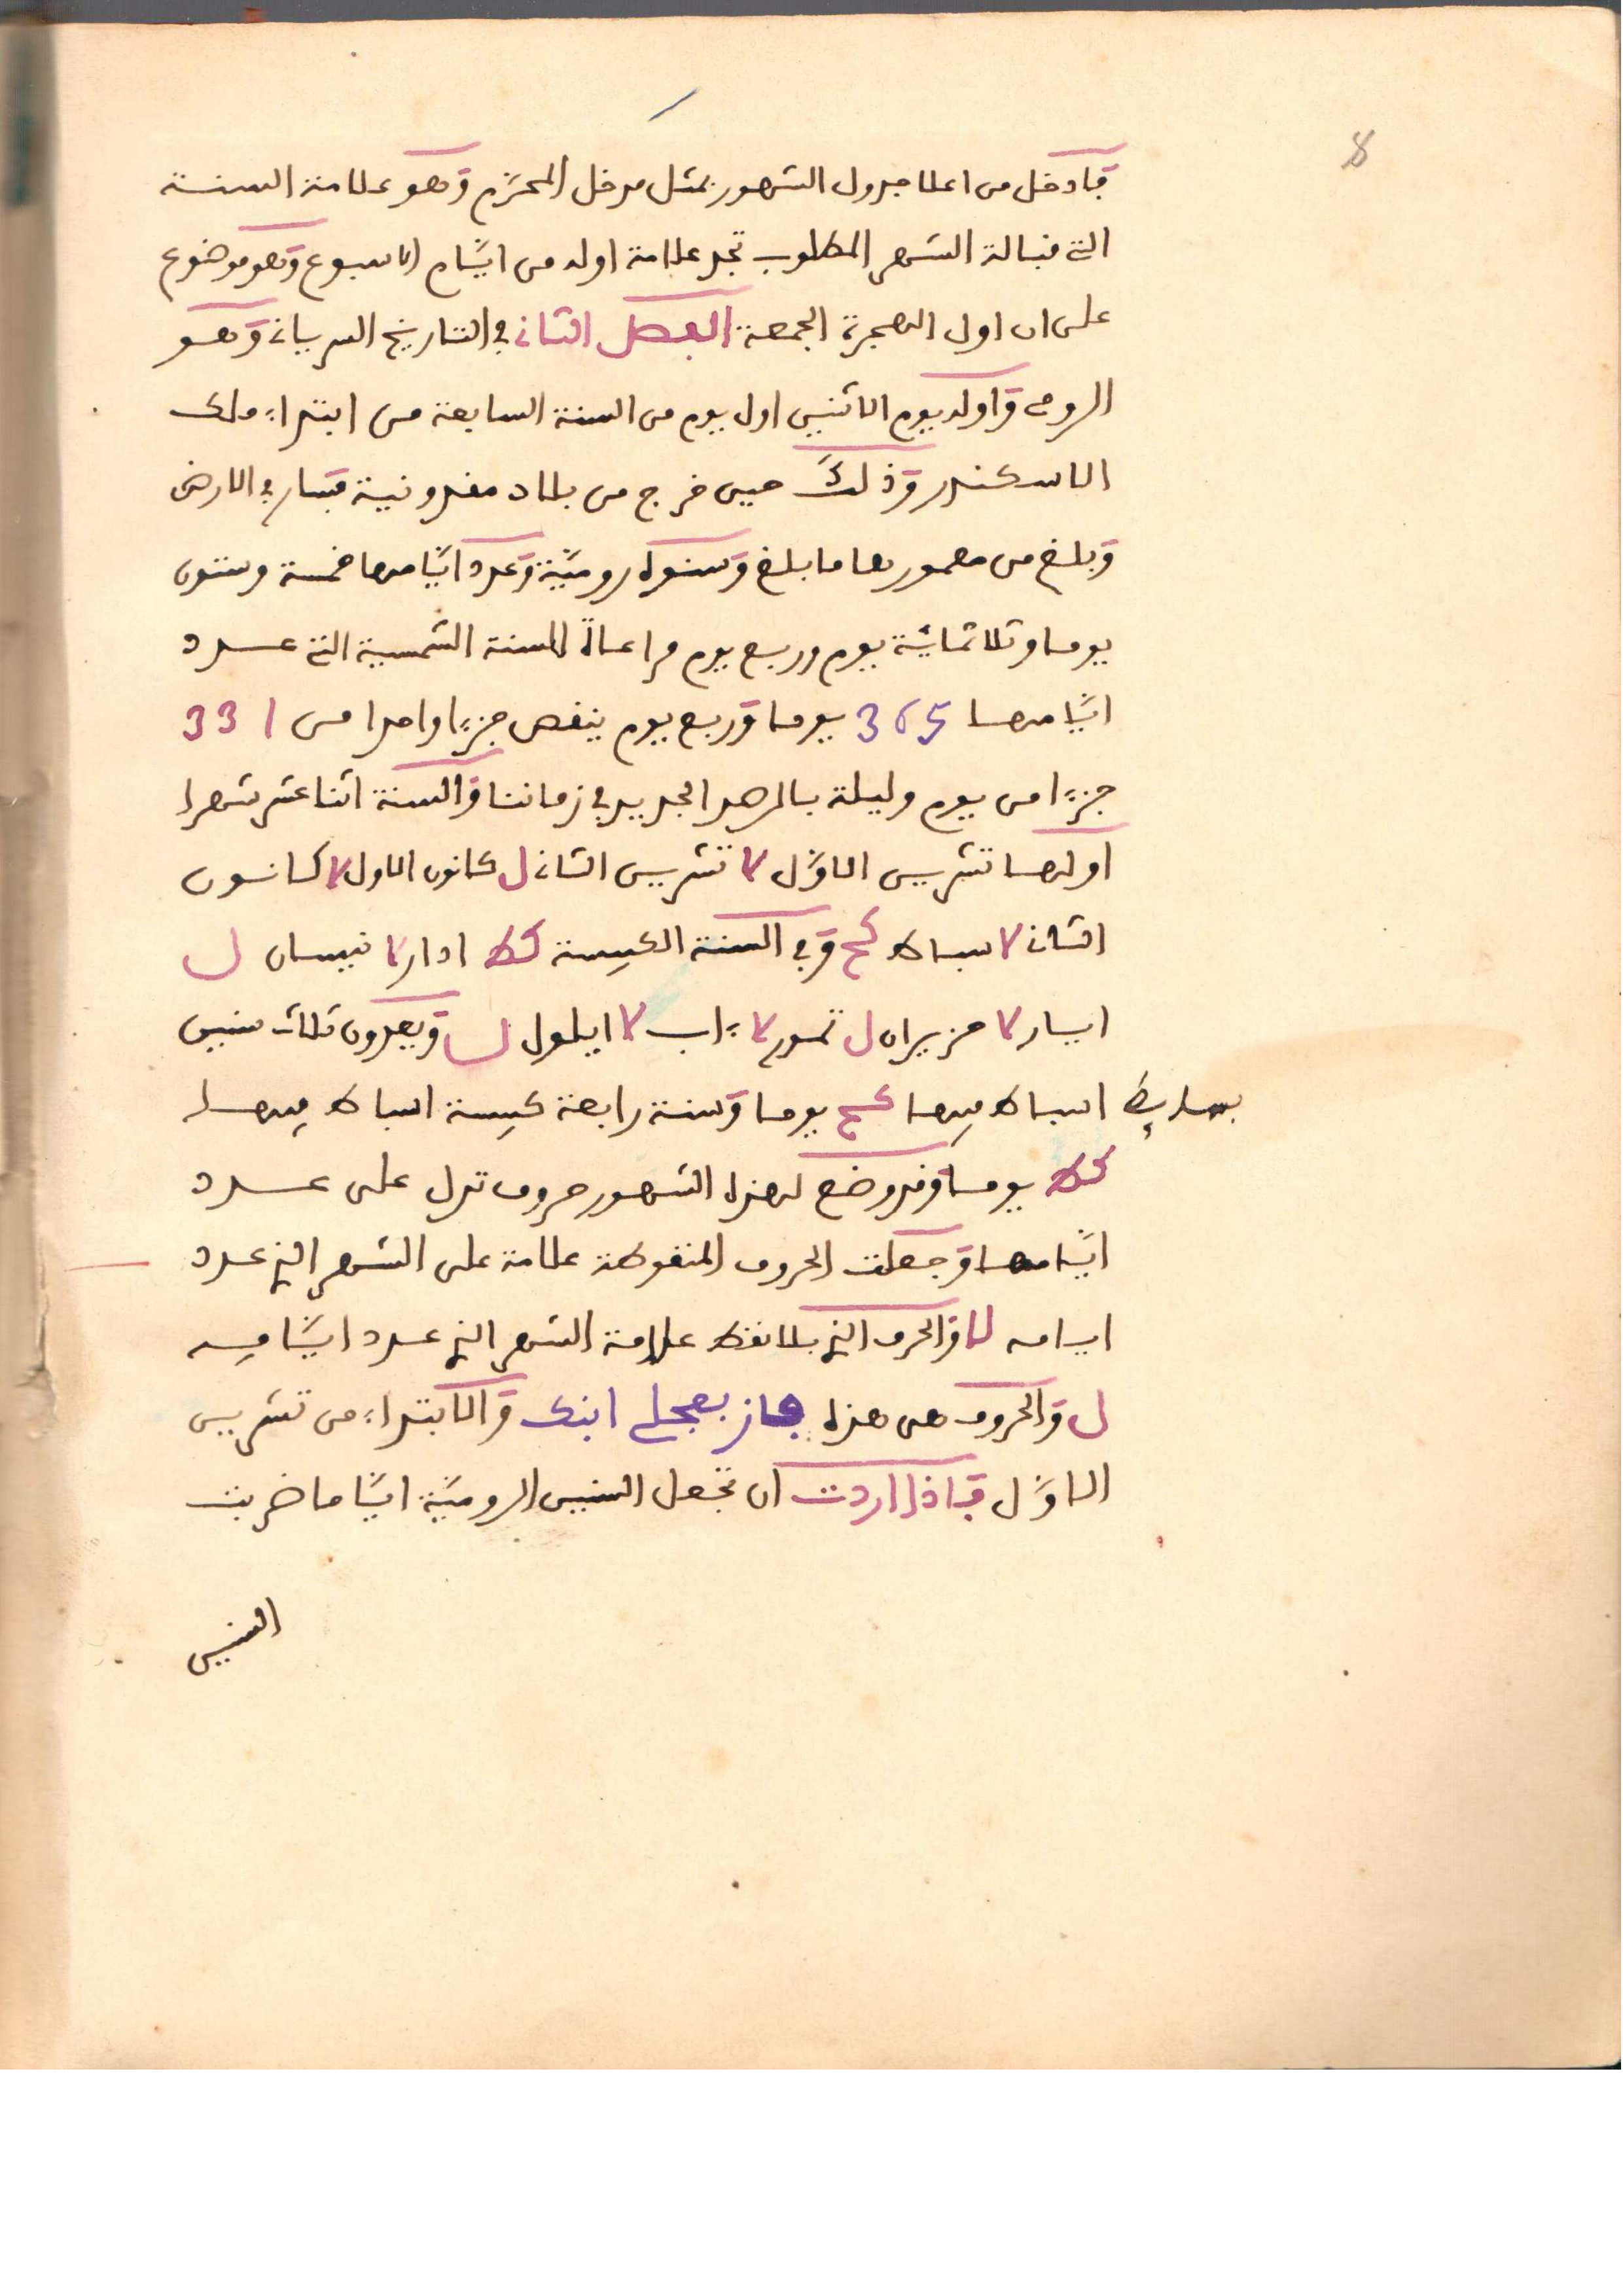 8
فادخل من اعلا جدول الشهور بمثل مدخل المحرّم وَهو علامة السنة
التي قبالة الشهر المطلوب تجد علامة اوله من ايّام الاسبوع وَهو موضوع
على ان اول الهجرة الجمعة الفصل الثاني في التاريخ السرياني وَهو
الرومي وَاوله يوم الاثنين اول يوم من السنة السابعة من ابتداء ملك
الاسكندر وَذلك حين خرج من بلاد مقدونية فسار في الارض
وَبلغ من معمورها ما بلغ وَسنوه روميّة وَعدد ايّامها خمسة وستون
يوما وثلاثمائة يوم وربع يوم مراعاة للسنة الشمسية التي عدد
ايّامها 365 يوما وَربع يوم ينقص جزءا واحدا من 331
جزءا من يوم وليلة بالرصد الجديد في زماننا وَالسنة اثنا عشر شهرا
اولها تشرين الاوّل لا تشرين الثاني ل كانون الاول لا كانون
الثاني لا سباط كح وَفي السنة الكبيسة كط ادار لا نيسان ل
ايار لا حزيران ل تموز لا ءاب لا ايلول ل وَيعدون ثلاث سنين
بسايط اسباط فيها كح يوما وَسنة رابعة كبيسة اسباط فيها
كط يوما وَقد وضع لهذه الشهور حروف تدل على عدد
ايّامها وَجعلت الحروف المنقوطة علامة على الشهر الذي عدد
ايامه لا وَالحرف الذي بلا نقط علامة الشهر الذي عدد ايّامه
ل وَالحروف هي هذه فاز بعجلي ابنك وَالابتداء من تشرين
الاوّل فاذا اردت ان تجعل السنين الروميّة ايّاما ضربت
السنين